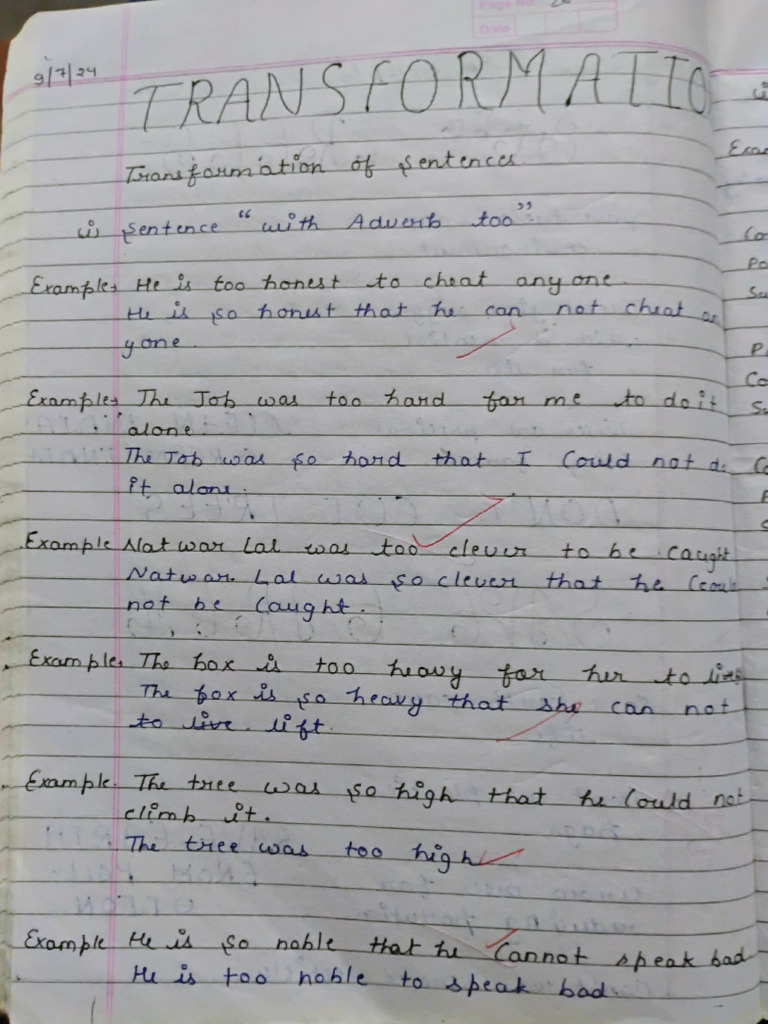 Page No. 20
Date
9/7/24
TRANSFORMATIO
Transformation of sentences
i) sentence "with Adverb too"
Example, He is too honest to cheat anyone.
He is so honest that he can not cheat an
yone.
Example, The Job was too hard for me to do it
alone.
The Job was so hard that I Could not do
it alone.
Example Natwar Lal was too clever to be caught
Natwar. Lal was so clever that he Could
not be Caught.
Example, The box is too heavy for her to
The box is so heavy that she can not
to live. lift.
Example. The tree was so high that he Could not
climb it.
The tree was too high
Example He is so noble that he Cannot speak bad
He is too noble to speak bad.
Exam
Co
Po
Su
P
Co
Su